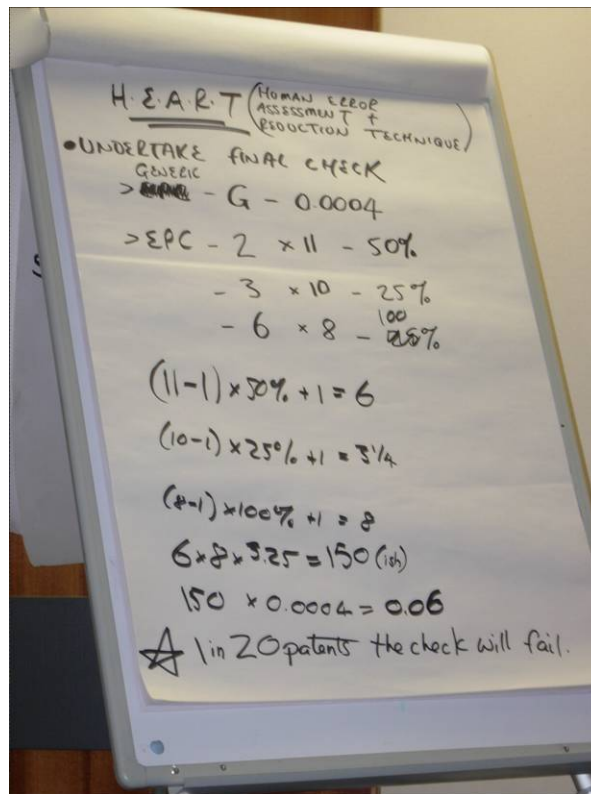 H.E.A.R.T (HUMAN ERROR
ASSESSMENT +
REDUCTION TECHNIQUE)
• UNDERTAKE FINAL CHECK
GENERIC
> - G - 0.0004
> EPC - 2 x 11 - 50%
- 3 x 10 - 25%
100
- 6 x 8 - %
(11-1) x 50% + 1 = 6
(10-1) x 25% + 1 = 3 1/4
(8-1) x 100% + 1 = 8
6 x 8 x 3.25 = 150 (ish)
150 x 0.0004 = 0.06
☆ 1 in 20 patents the check will fail.